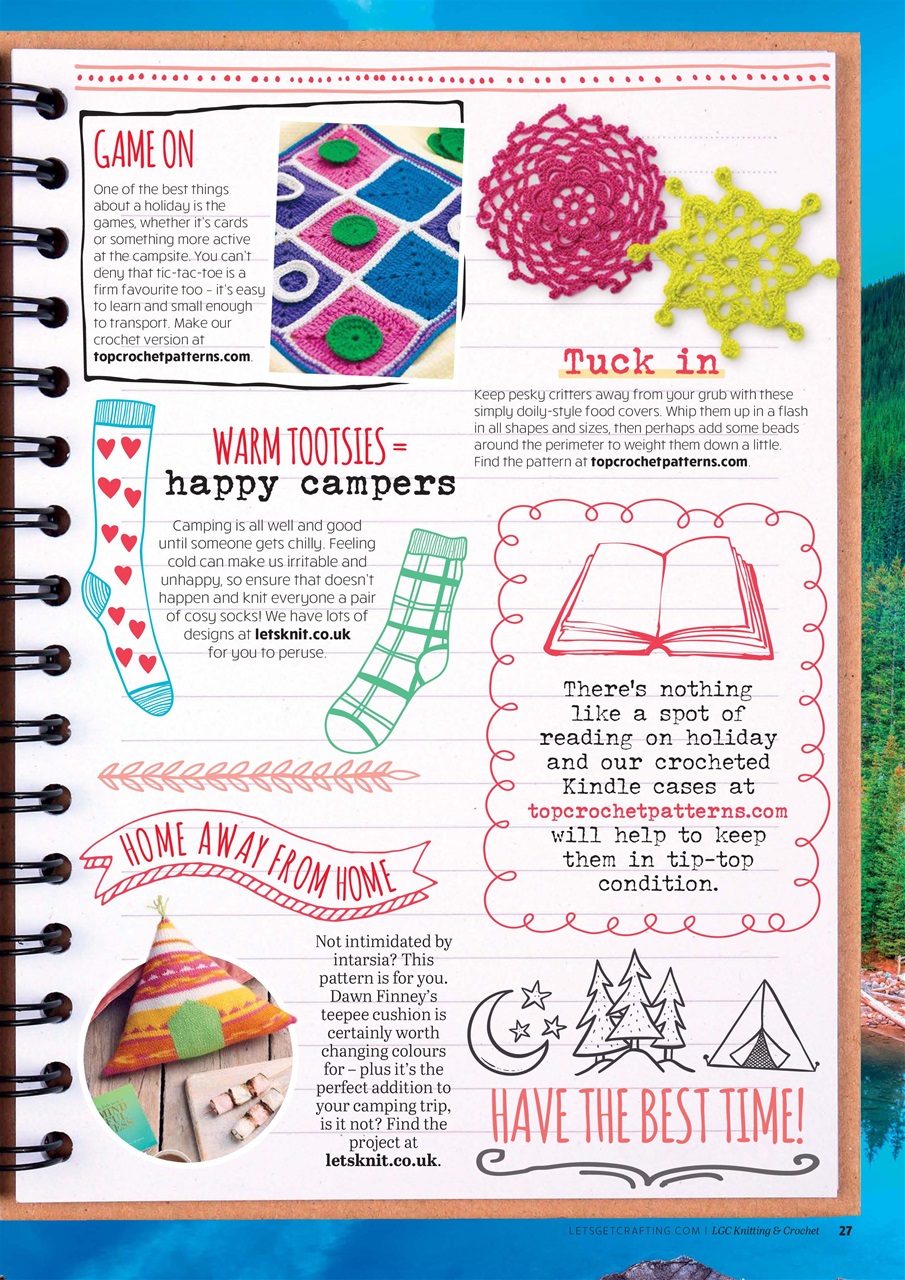 GAME ON
One of the best things
about a holiday is the
games, whether it's cards
or something more active
at the campsite. You can't
deny that tic-tac-toe is a
firm favourite too – it's easy
to learn and small enough
to transport. Make our
crochet version at
topcrochetpatterns.com.
Tuck in
Keep pesky critters away from your grub with these
simply doily-style food covers. Whip them up in a flash
in all shapes and sizes, then perhaps add some beads
around the perimeter to weight them down a little.
Find the pattern at topcrochetpatterns.com.
WARM TOOTSIES =
happy campers
Camping is all well and good
until someone gets chilly. Feeling
cold can make us irritable and
unhappy, so ensure that doesn't
happen and knit everyone a pair
of cosy socks! We have lots of
designs at letsknit.co.uk
for you to peruse.
There's nothing
like a spot of
reading on holiday
and our crocheted
Kindle cases at
topcrochetpatterns.com
will help to keep
them in tip-top
condition.
HOME AWAY FROM HOME
Not intimidated by
intarsia? This
pattern is for you.
Dawn Finney's
teepee cushion is
certainly worth
changing colours
for – plus it's the
perfect addition to
your camping trip,
is it not? Find the
project at
letsknit.co.uk.
HAVE THE BEST TIME!
LETSGETCRAFTING.COM | LGC Knitting & Crochet 27